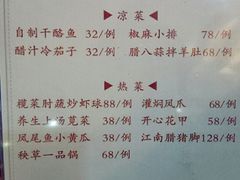 凉菜
自制干酪鱼 32/例 椒麻小排 78/例
醋汁冷茄子 32/例 腊八蒜拌羊肚68/例
热菜
榄菜肘蔬炒虾球88/例 灌焖凤爪 68/例
养生上汤苋菜 38/例 开心花甲 58/例
凤尾鱼小黄瓜 38/例 江南腊猪脚128/例
秧草一品锅 68/例